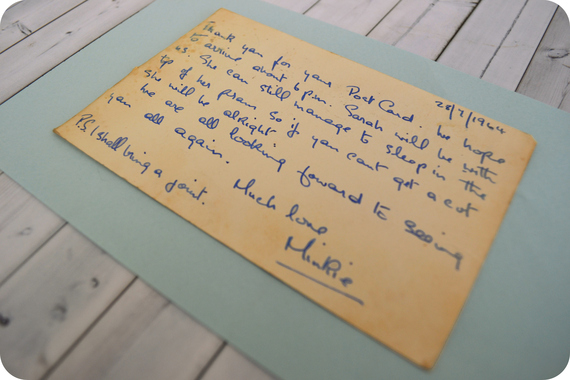 28/7/1964
Thank you for your Post Card. We hope
to arrive about 6 pm. Sarah will be with
us. She can still manage to sleep in the
top of her pram so if you can't get a cot
she will be alright. We are all looking forward to seeing
you all again.
Much love
Minkie
P.S. I shall bring a joint.